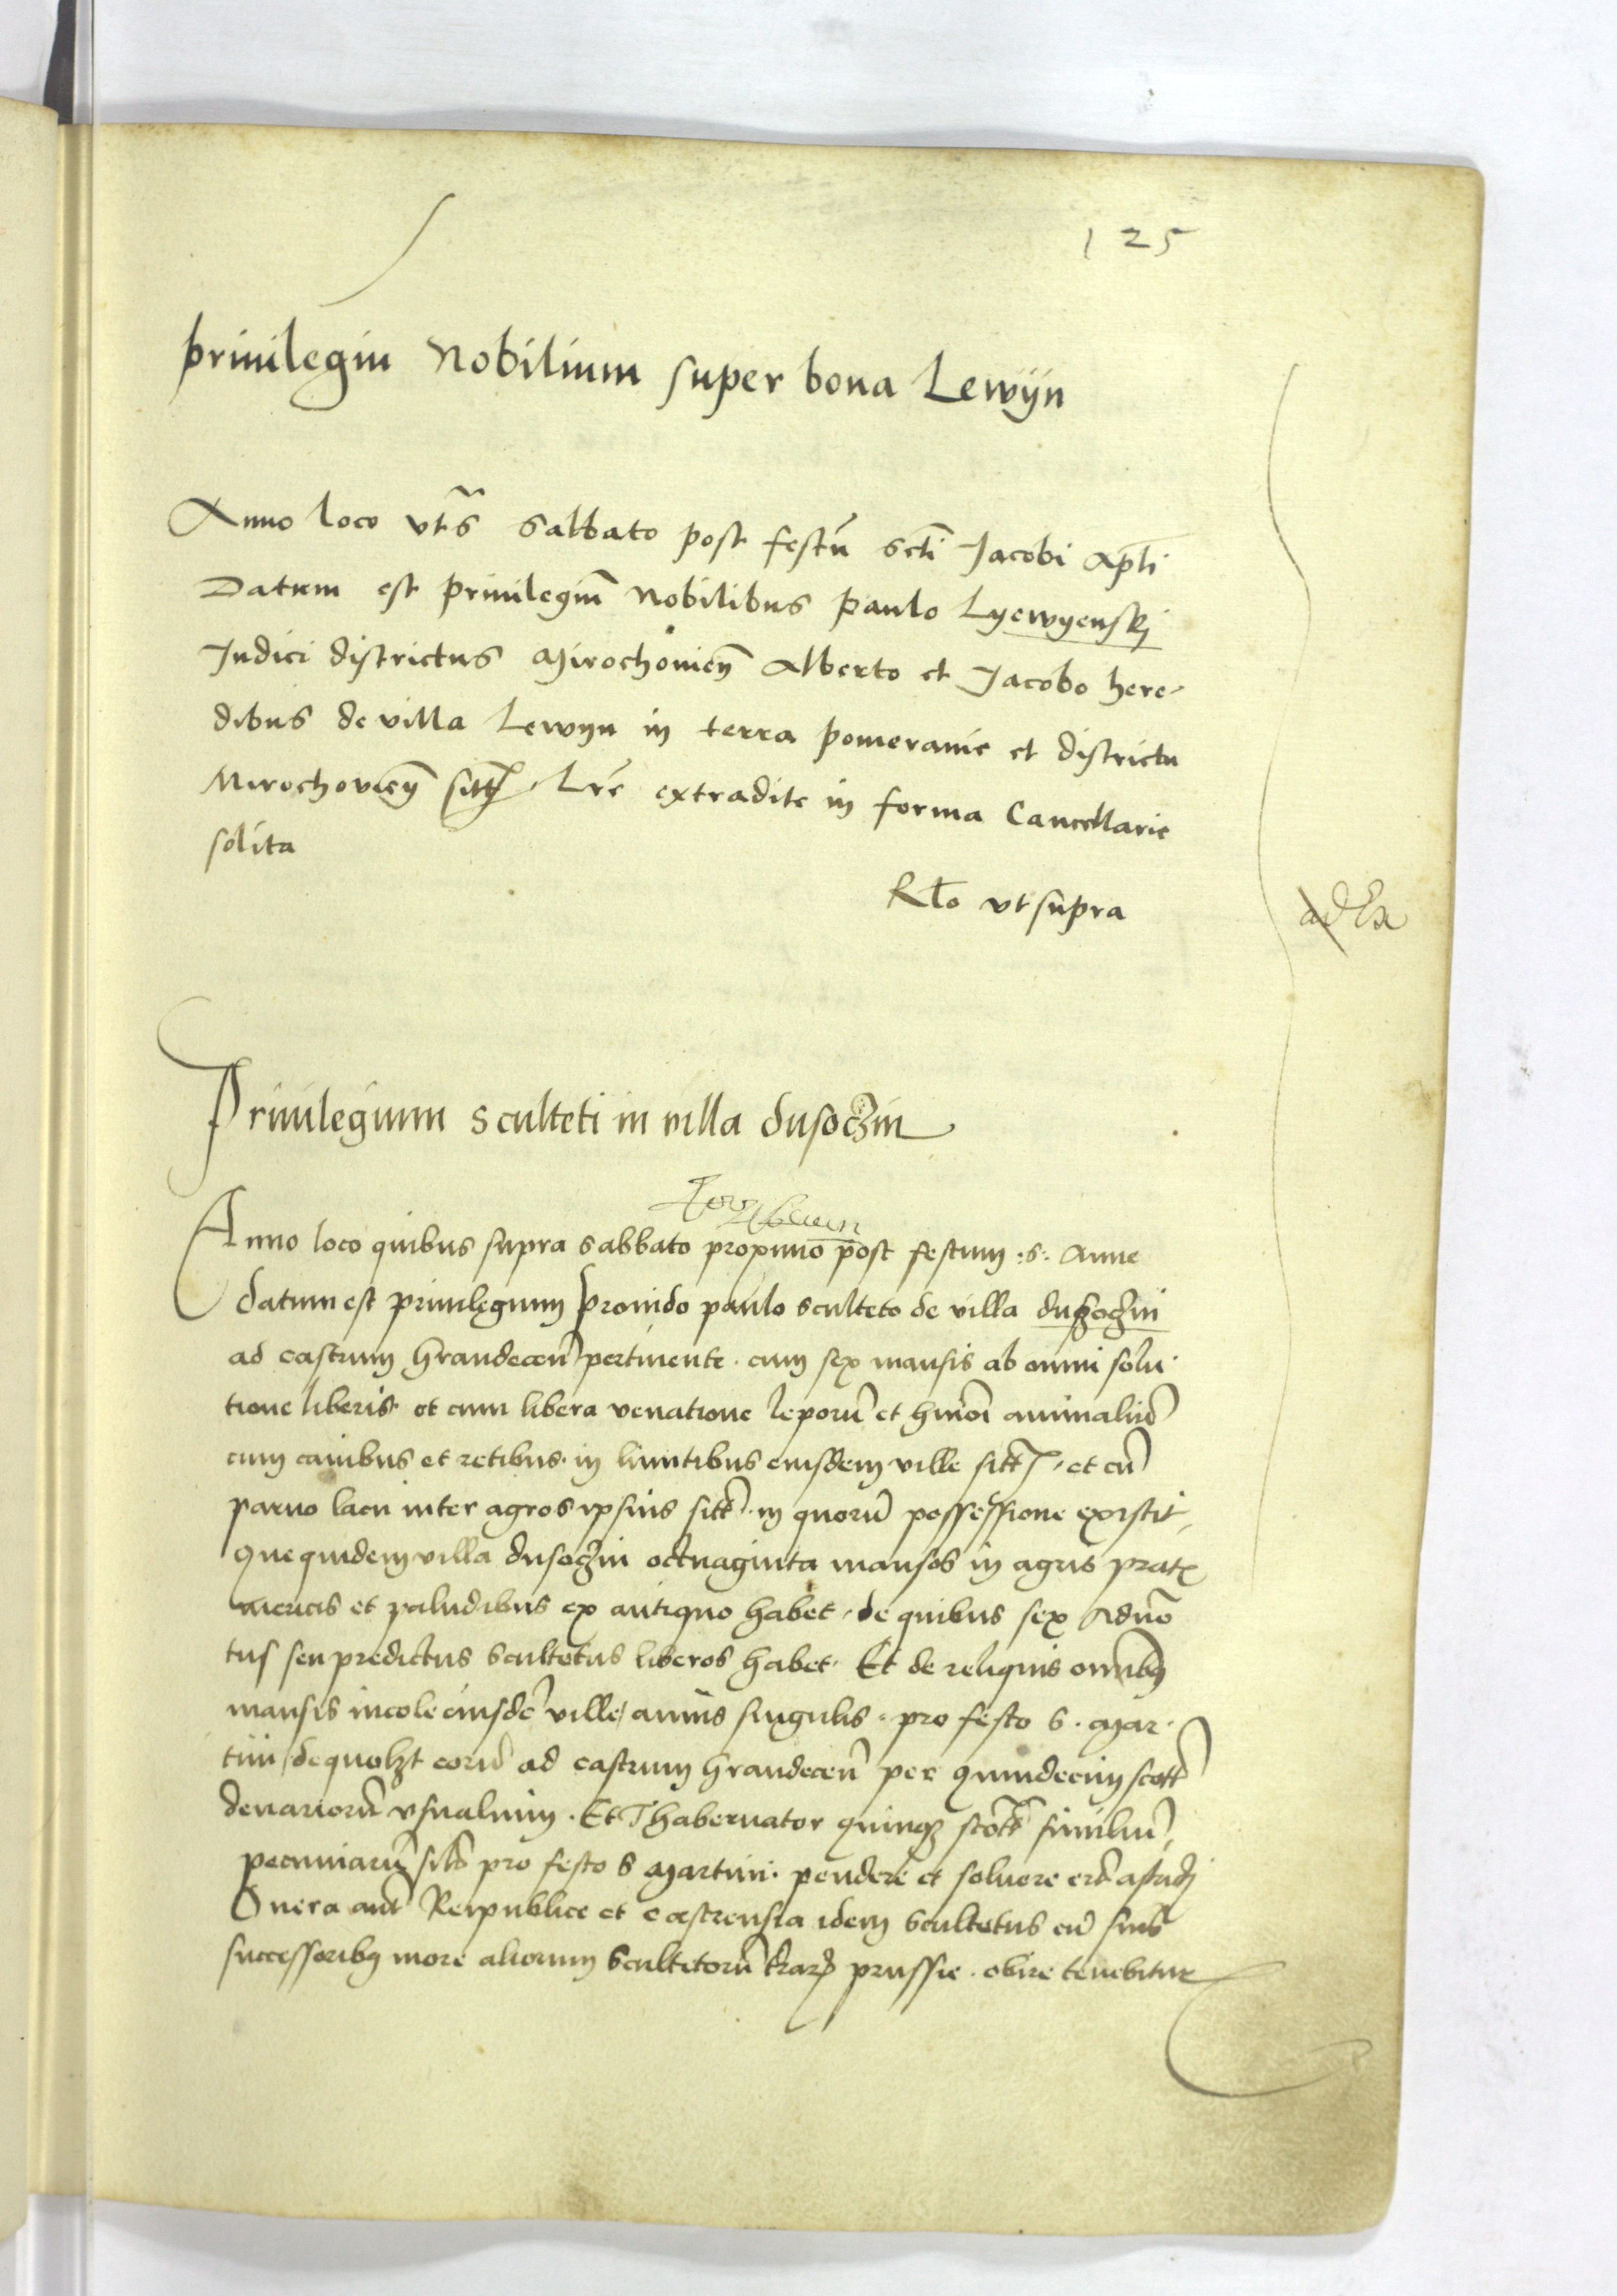 125
priuilegiu Nobilium super bona Lewyn
Anno loco vts̃ Sabbato post festũ scti Jacobi apli
Datum est priuilegiũ Nobilibus paulo Lyewyenskj
Judici districtus Mirochouieñ Alberto et Jacobo here-
dibus de villa Lewyn in terra pomeranie et districtu
Mirochovieñ sitt. Lrẽ extradite in forma Cancellarie
solita
Rto vt supra
ad
Priuilegium sculteti in villa dusoczin
Anno loco quibus supra sabbato proximo post festum .s. Anne
datum est priuilegium prouido paulo sculteto de villa duszoczin
ad castrum Graudecen̄ pertinente. cum sex mansis ab omni solu-
tione liberis. et cum libera venatione leporũ et hmōi animaliũ
cum canibus et retibus. in limitibus eiusdem ville sitt. et cũ
paruo lacu inter agros ipsius sitt. in quorũ possessione existit,
Que quidem villa dusoczin octuaginta mansos in agris prat
mericis et paludibus ex antiquo habet. de quibus sex Aduo
tus seu predictus scultetus liberos habet. Et de reliquis omnibq
mansis incole eiusdẽ ville annis singulis. pro festo S. Mar-
tini de quolzt eorũ ad castrum Graudecen̄ per quindecim scott
denariorũ vsualium. Et Thabernator quinq scott similiũ
pecuniarũ silr pro festo S Martini. pendere et soluere erũt astricti
Onera aut Reipublice et castrensia idem scultetus cũ suis
successoribq more aliorum Scultetorũ trarz prussie. obire tenebitur